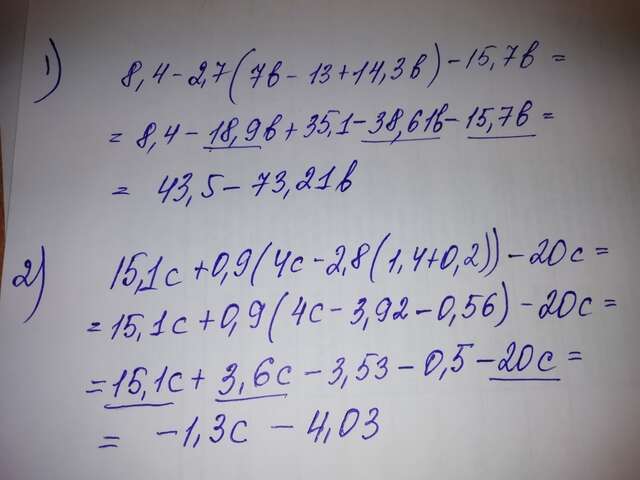 1) 8,4-2,7(7в-13+14,3в)-15,7в=
=8,4-18,9в+35,1-38,61в-15,7в=
= 43,5-73,21в
2) 15,1с+0,9(4с-2,8(1,4+0,2))-20с=
=15,1с+0,9(4с-3,92-0,56)-20с=
=15,1с+3,6с-3,53-0,5-20с=
= -1,3с-4,03